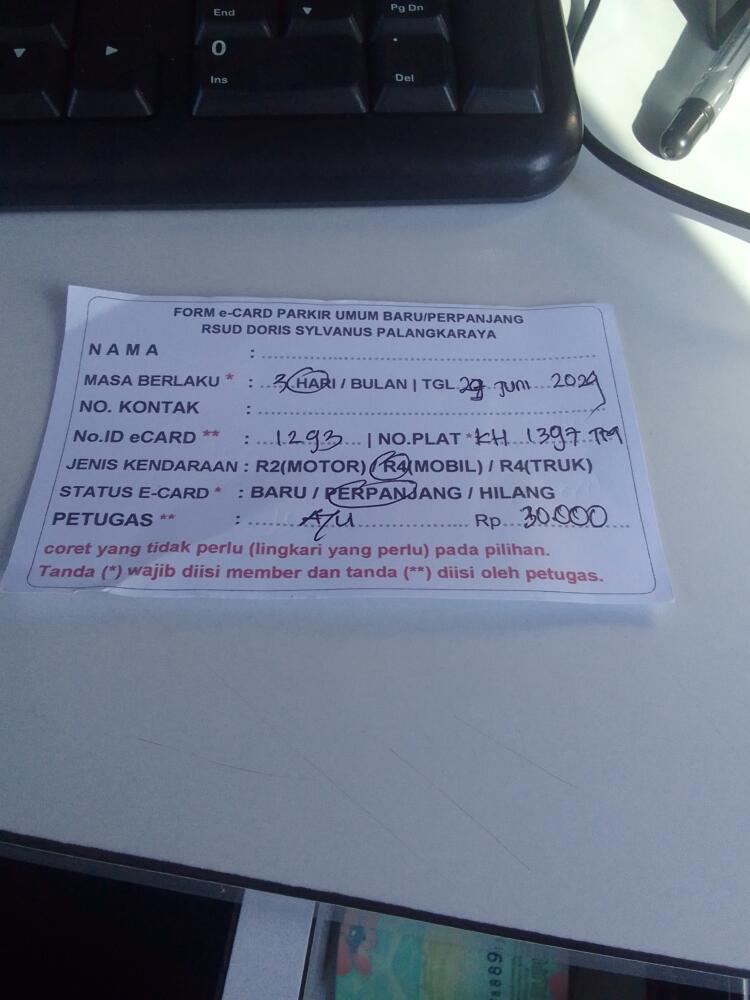 End
Pg Dn
0
Ins
.
Del
FORM e-CARD PARKIR UMUM BARU/PERPANJANG
RSUD DORIS SYLVANUS PALANGKARAYA
N A M A :
MASA BERLAKU * : 3 HARI / BULAN | TGL 29 Juni 2024
NO. KONTAK :
No.ID eCARD ** : 1293 | NO.PLAT * KH 1397 TM
JENIS KENDARAAN : R2(MOTOR) / R4(MOBIL) / R4(TRUK)
STATUS E-CARD * : BARU / PERPANJANG / HILANG
PETUGAS ** : A/U Rp 30.000
coret yang tidak perlu (lingkari yang perlu) pada pilihan.
Tanda (*) wajib diisi member dan tanda (**) diisi oleh petugas.